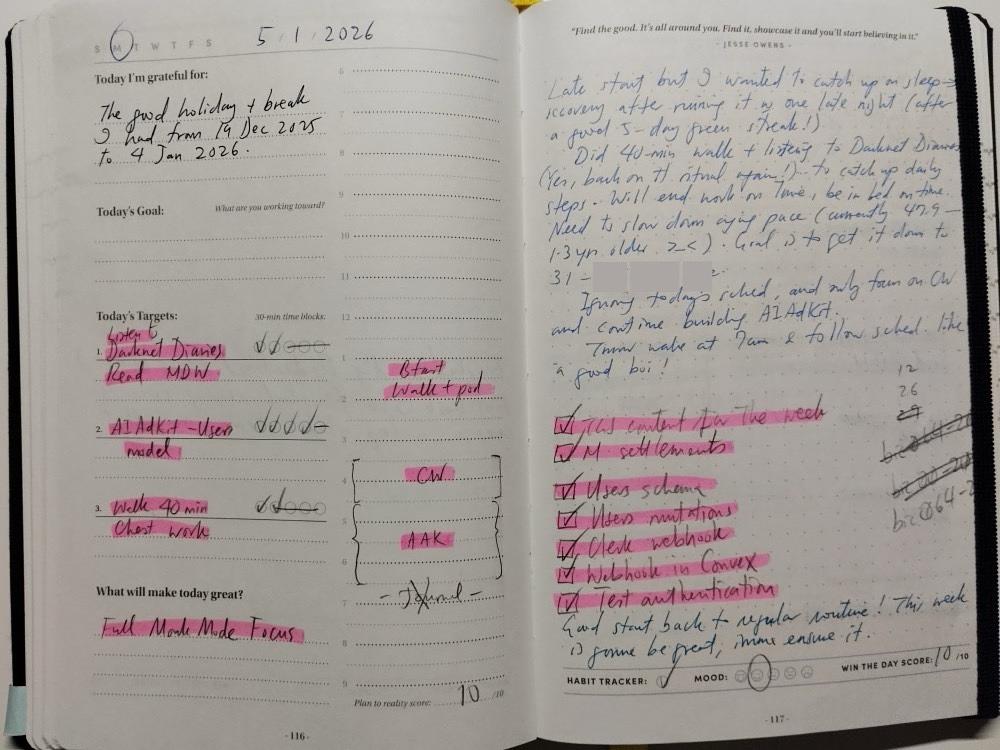 S M T W T F S 5/1/2026
Today I'm grateful for:
The good holiday + break
I had from 19 Dec 2025
to 4 Jan 2026.
Today's Goal: What are you working toward?
Today's Targets: 30-min time blocks:
Listen to
1. Darknet Diaries
Read MDW
2. AI AdKit - Users
model
3. Walk 40 min
Chest work
What will make today great?
Full Monk Mode Focus
6
7
8
9
10
11
12
1
Bfast
2 Walk + pod
3
4 CW
5
AAK
6
7 - Journal -
8
9
Plan to reality score: 10 /10
- 116 -
"Find the good. It's all around you. Find it, showcase it and you'll start believing in it."
- JESSE OWENS -
Late start but I wanted to catch up on sleep +
recovery after ruining it w one late night (after
a good 5-day green streak!)
Did 40-min walk + listening to Darknet Diaries
(Yes, back on ritual again!) to catch up daily
steps. Will end work on time, be in bed on time.
Need to slow down aging pace (currently 47.9 -
1.3 yrs older >.<). Goal is to get it down to
31 -
Ignoring today's sched, and only focus on CW
and continue building AI AdKit.
Tmrw wake at 7am & follow sched like
a good boi!
12
26
29
content for the week
M. settlements
Users schema
Users mutations
Clerk webhook
Webhook in Convex
Test authentication
Good start back to regular routine! This week
is gonna be great, imma ensure it.
HABIT TRACKER: MOOD: WIN THE DAY SCORE: 10 /10
- 117 -